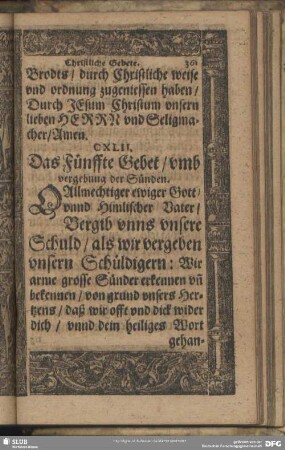 Christliche Gebete.
Brodts / durch Christliche weise
vnd ordnung zugeniessen haben /
Durch JEsum Christum vnsern
lieben HERRN vnd Seligma-
cher / Amen.
CXLII.
Das Fünffte Gebet / vmb
vergebung der Sünden.
O Allmechtiger ewiger Gott /
vnnd Himlischer Vater /
Vergib vnns vnsere
Schuld / als wir vergeben
vnsern Schüldigern: Wir
arme grosse Sünder erkennen vn̄
bekennen / von grund vnsers Her-
tzens / daß wir offt vnd dick wider
dich / vnnd dein heiliges Wort
gehan-
SLUB
DFG